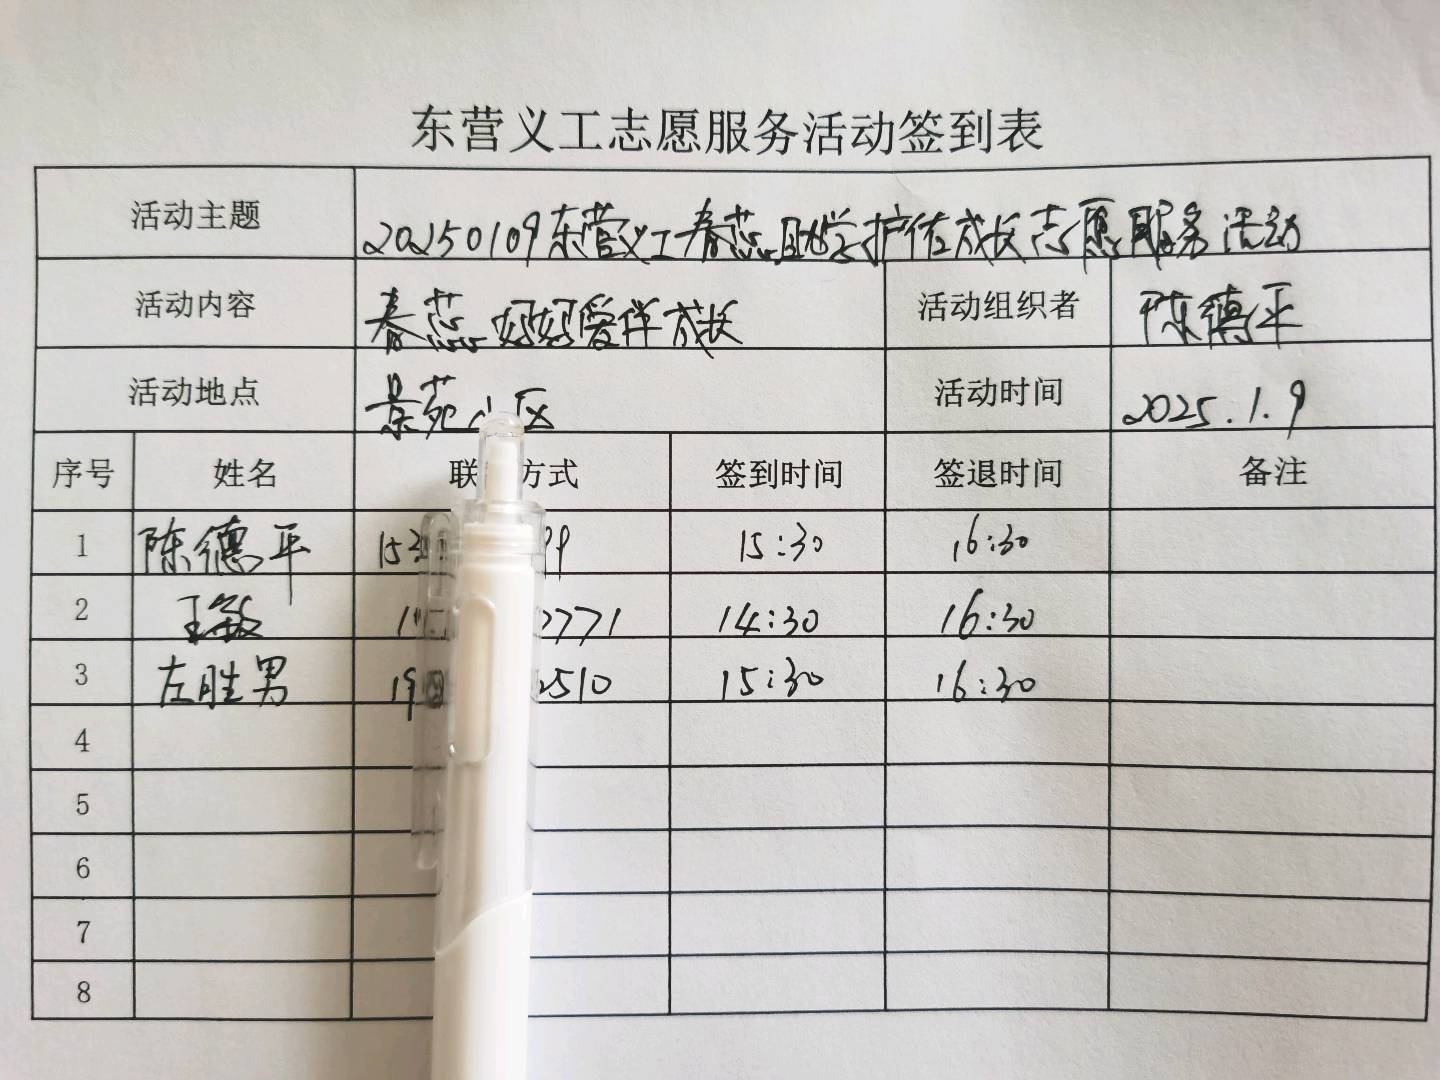 东营义工志愿服务活动签到表
活动主题 20250109东营义工春蕊助学护佑成长志愿服务活动
活动内容 春蕊妈妈爱伴成长 活动组织者 陈德平
活动地点 景苑小区 活动时间 2025.1.9
序号 姓名 联 方式 签到时间 签退时间 备注
1 陈德平 15:30 16:30
2 王敏 2771 14:30 16:30
3 左胜男 19 2510 15:30 16:30
4
5
6
7
8